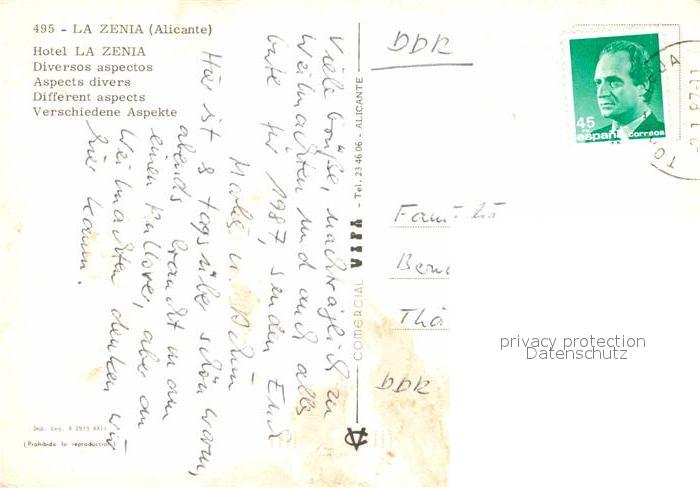 495 - LA ZENIA (Alicante)
Hotel LA ZENIA
Diversos aspectos
Aspects divers
Different aspects
Verschiedene Aspekte
Viele Grüße, nachträglich zu
Weihnachten und auch alles
Gute für 1987, senden Euch
Hier ist s tagsüber schön warm,
abends braucht man
einen Pullover, aber an
Weihnachten denken wir
hier kaum.
COMERCIAL VIPA - Tel. 23 46 06 - ALICANTE
DDR
45
españa correos
DDR
privacy protection
Datenschutz
(Prohibida la reproducción)